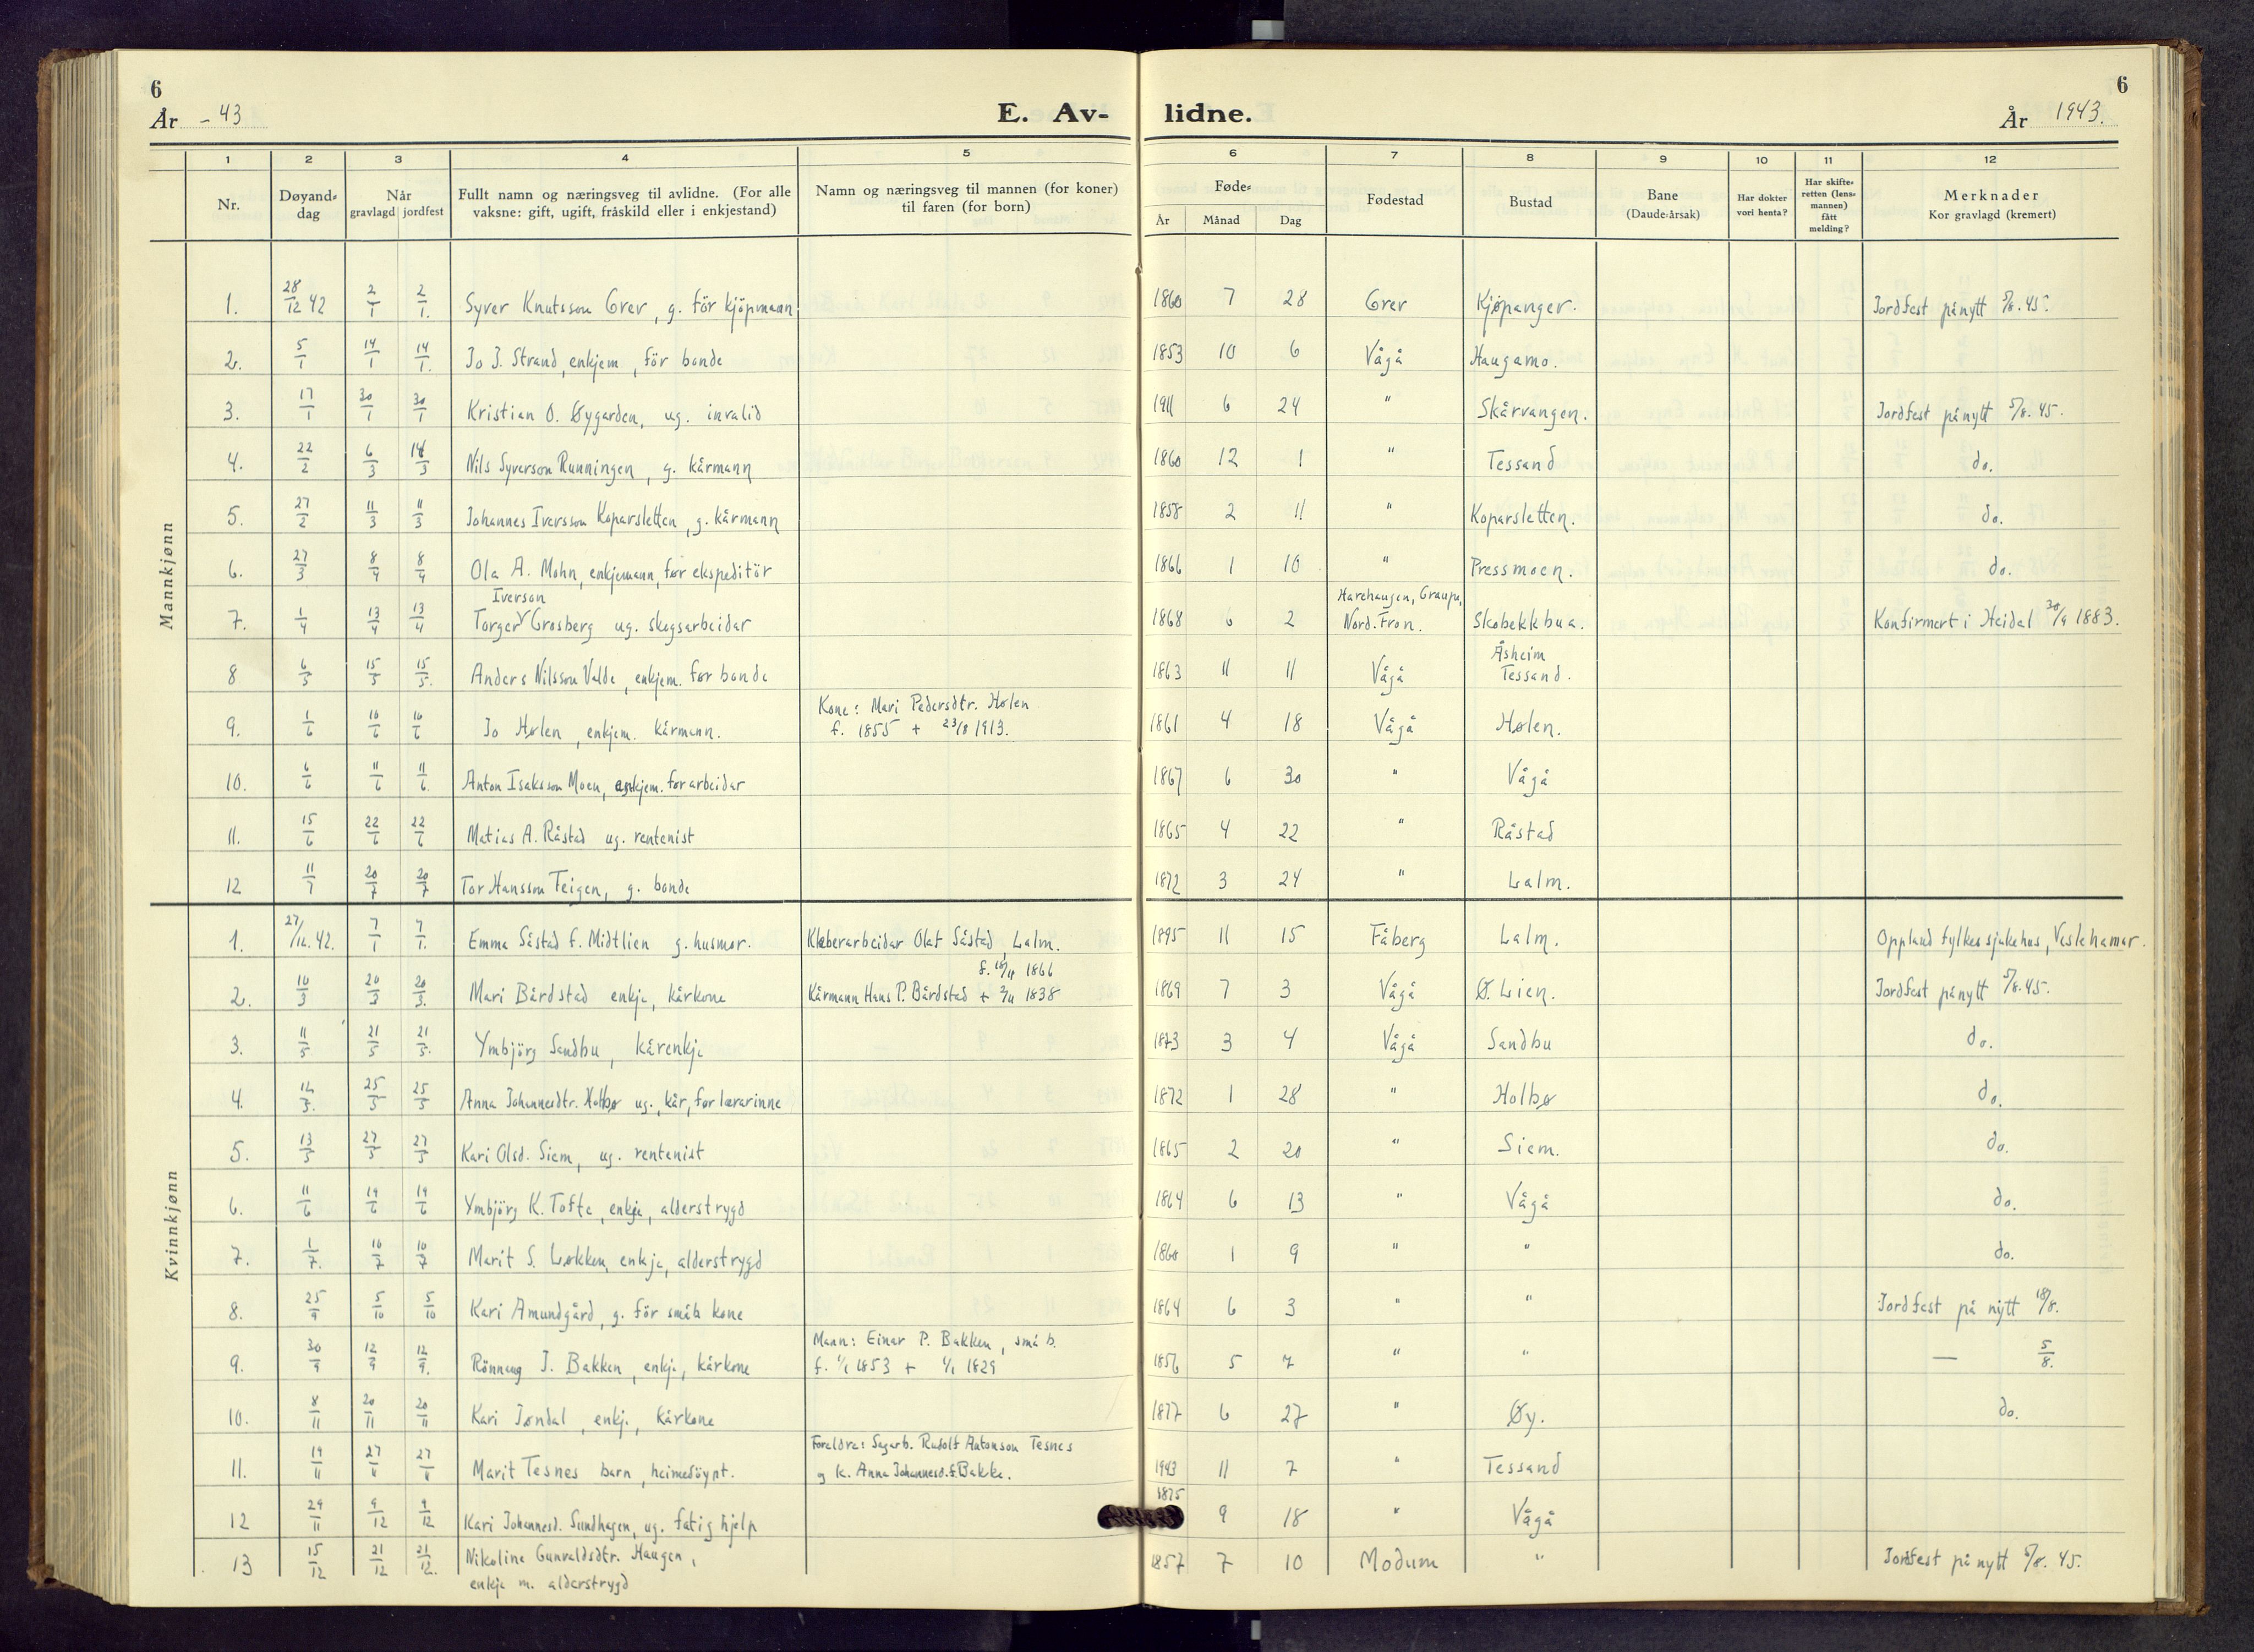 6
År -43
E. Av-
lidne.
År 1943.
6
1 2 3 4 5 6 7 8 9 10 11 12
Nr.
Døyand-
dag
Når
gravlagd jordfest
Fullt namn og næringsveg til avlidne. (For alle
vaksne: gift, ugift, fråskild eller i enkjestand)
Namn og næringsveg til mannen (for koner)
til faren (for born)
Føde-
År Månad Dag
Fødestad
Bustad
Bane
(Daude-årsak)
Har dokter
vori henta?
Har skifte-
retten (lens-
mannen)
fått
melding?
Merknader
Kor gravlagd (kremert)
Mannkjønn
1. 28/12 42 2/1 2/1. Syver Knutsson Grev, g. för kjöpmann 1860 7 28 Grev Kjøpanger. Jordfest på nytt 5/8. 45.
2. 5/1 14/1 14/1. Jo J. Strand, enkjem, för bonde 1853 10 6 Vågå Haugamo.
3. 17/1 30/1 30/1 Kristian O. Øygarden, ug. invalid 1911 6 24 " Skårvangen. Jordfest på nytt 5/8. 45.
4. 22/2 6/3 14/3 Nils Syverson Runningen, g. kårmann 1860 12 1 " Tessand do.
5. 27/2 11/3 11/3 Johannes Iversson Koparsletten, g. kårmann 1858 2 11 " Koparsletten. do.
6. 27/3 8/4 8/4 Ola A. Mohn, enkjemann, før ekspeditör 1866 1 10 " Pressmoen. do.
Iverson
Harehaugen, Graupe,
7. 1/4 13/4 13/4 Torger Grosberg ug. skogsarbeidar 1868 6 2 Nord. Fron. Skobekkbua. Konfirmert i Heidal 30/9 1883.
Åsheim
8 6/5 15/5 15/5. Anders Nilsson Valde, enkjem. før bonde 1863 11 11 Vågå Tessand.
Kone: Mari Pedersdtr. Holen
9. 1/6 10/6 10/6 Jo Hølen, enkjem. kårmann. f. 1855 + 23/8 1913. 1861 4 18 Vågå Hølen.
10. 6/6 11/6 11/6. Anton Isaksson Moen, enkjem. før arbeidar 1867 6 30 " Vågå
11. 15/6 22/6 22/6 Matias A. Råstad ug. rentenist 1865 4 22 " Råstad
12 11/7 20/7 20/7 Tor Hansson Teigen, g. bonde 1872 3 24 " Lalm.
Kvinnkjønn
1. 27/12. 42. 7/1 7/1. Emma Såstad f. Midtlien g. husmor. Kleberarbeidar Olaf Såstad, Lalm. 1895 11 15 Fåberg Lalm. Oppland fylkes sjukehus, Veslehamar.
f. 18/11 1866
2. 10/3 20/3 20/3. Mari Bårdstad enkje, kårkone Kårmann Hans P. Bårdstad + 2/11 1838 1869 7 3 Vågå Ø. Lien. Jordfest på nytt 5/8. 45.
3. 11/5 21/5 21/5. Ymbjörg Sandbu, kårenkje 1873 3 4 Vågå Sandbu do.
4. 12/5. 25/5 25/5 Anna Johannesdtr. Holbø ug., kår, før lærarinne 1872 1 28 " Holbø do.
5. 13/5 27/5 27/5 Kari Olsd. Siem, ug. rentenist 1865 2 20 " Siem. do.
6. 11/6 19/6 19/6 Ymbjörg K. Tofte, enkje, alderstrygd 1864 6 13 " Vågå do.
7. 1/7. 10/7 10/7 Marit S. Løkken, enkje, alderstrygd 1860 1 9 " " do.
8. 25/9 5/10 5/10 Kari Amundgård, g. för småb kone 1864 6 3 " " Jordfest på nytt 18/8.
Mann: Einar P. Bakken, små b.
9. 30/9 12/9 12/9. Rönnaug J. Bakken, enkje, kårkone f. 1/1 1853 + 1/1 1829 1856 5 7 " " — 5/8.
10. 8/11 20/11 20/11 Kari Jøndal, enkj., kårkone 1877 6 27 " Øy. do.
Foreldre: Sagarb. Rudolf Antonson Tesnes
11. 19/11 27/11 27/11 Marit Tesnes barn, heimedöypt. og k. Anna Johannesd. f. Bakke. 1943 11 7 " Tessand
12 29/11 9/12 9/12 Kari Johannesd. Sundhagen, ug. fatighjelp 1875 9 18 " Vågå
13 15/12 21/12 21/12. Nikoline Gunvaldsdtr. Haugen, 1857 7 10 Modum " Jordfest på nytt 5/8. 45.
enkje m. alderstrygd